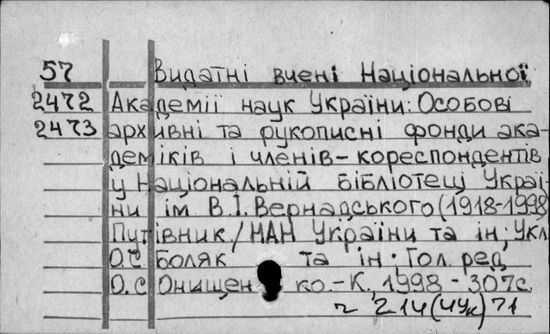 57 Видатні вчені Національної
2472 Академії наук України: Особові
2473 архивні та рукописні фонди ака-
деміків і членів-кореспондентів
у Національній бібліотеці Украї-
ни ім. В.І. Вернадського (1918-1998)
Путівник/НАН України та ін; Укл.
О.С. Боляк та ін; Гол. ред.
О.С. Онищенко.-К. 1998-307с.
2 214(4Ук)71